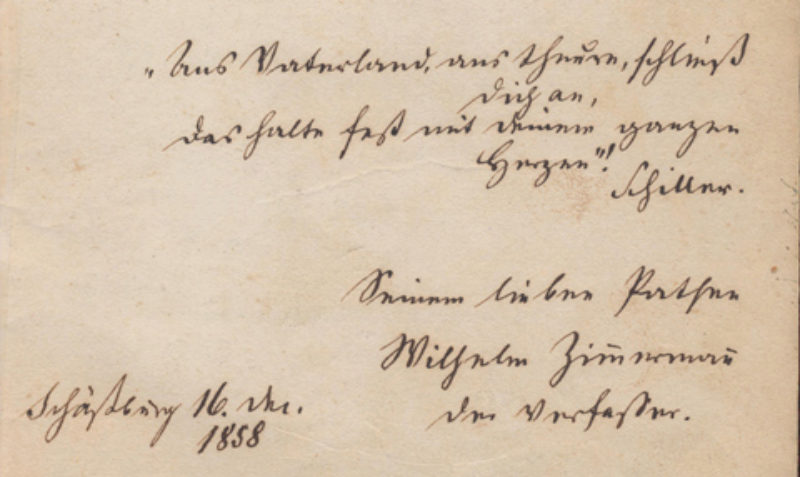 „Ans Vaterland, ans theure, schließ
dich an,
das halte fest mit deinem ganzen
Herzen“!
Schiller.
Seinem lieben Pathen
Wilhelm Zim̅erman̅
der Verfasser.
Schäßburg 16. Dec.
1858